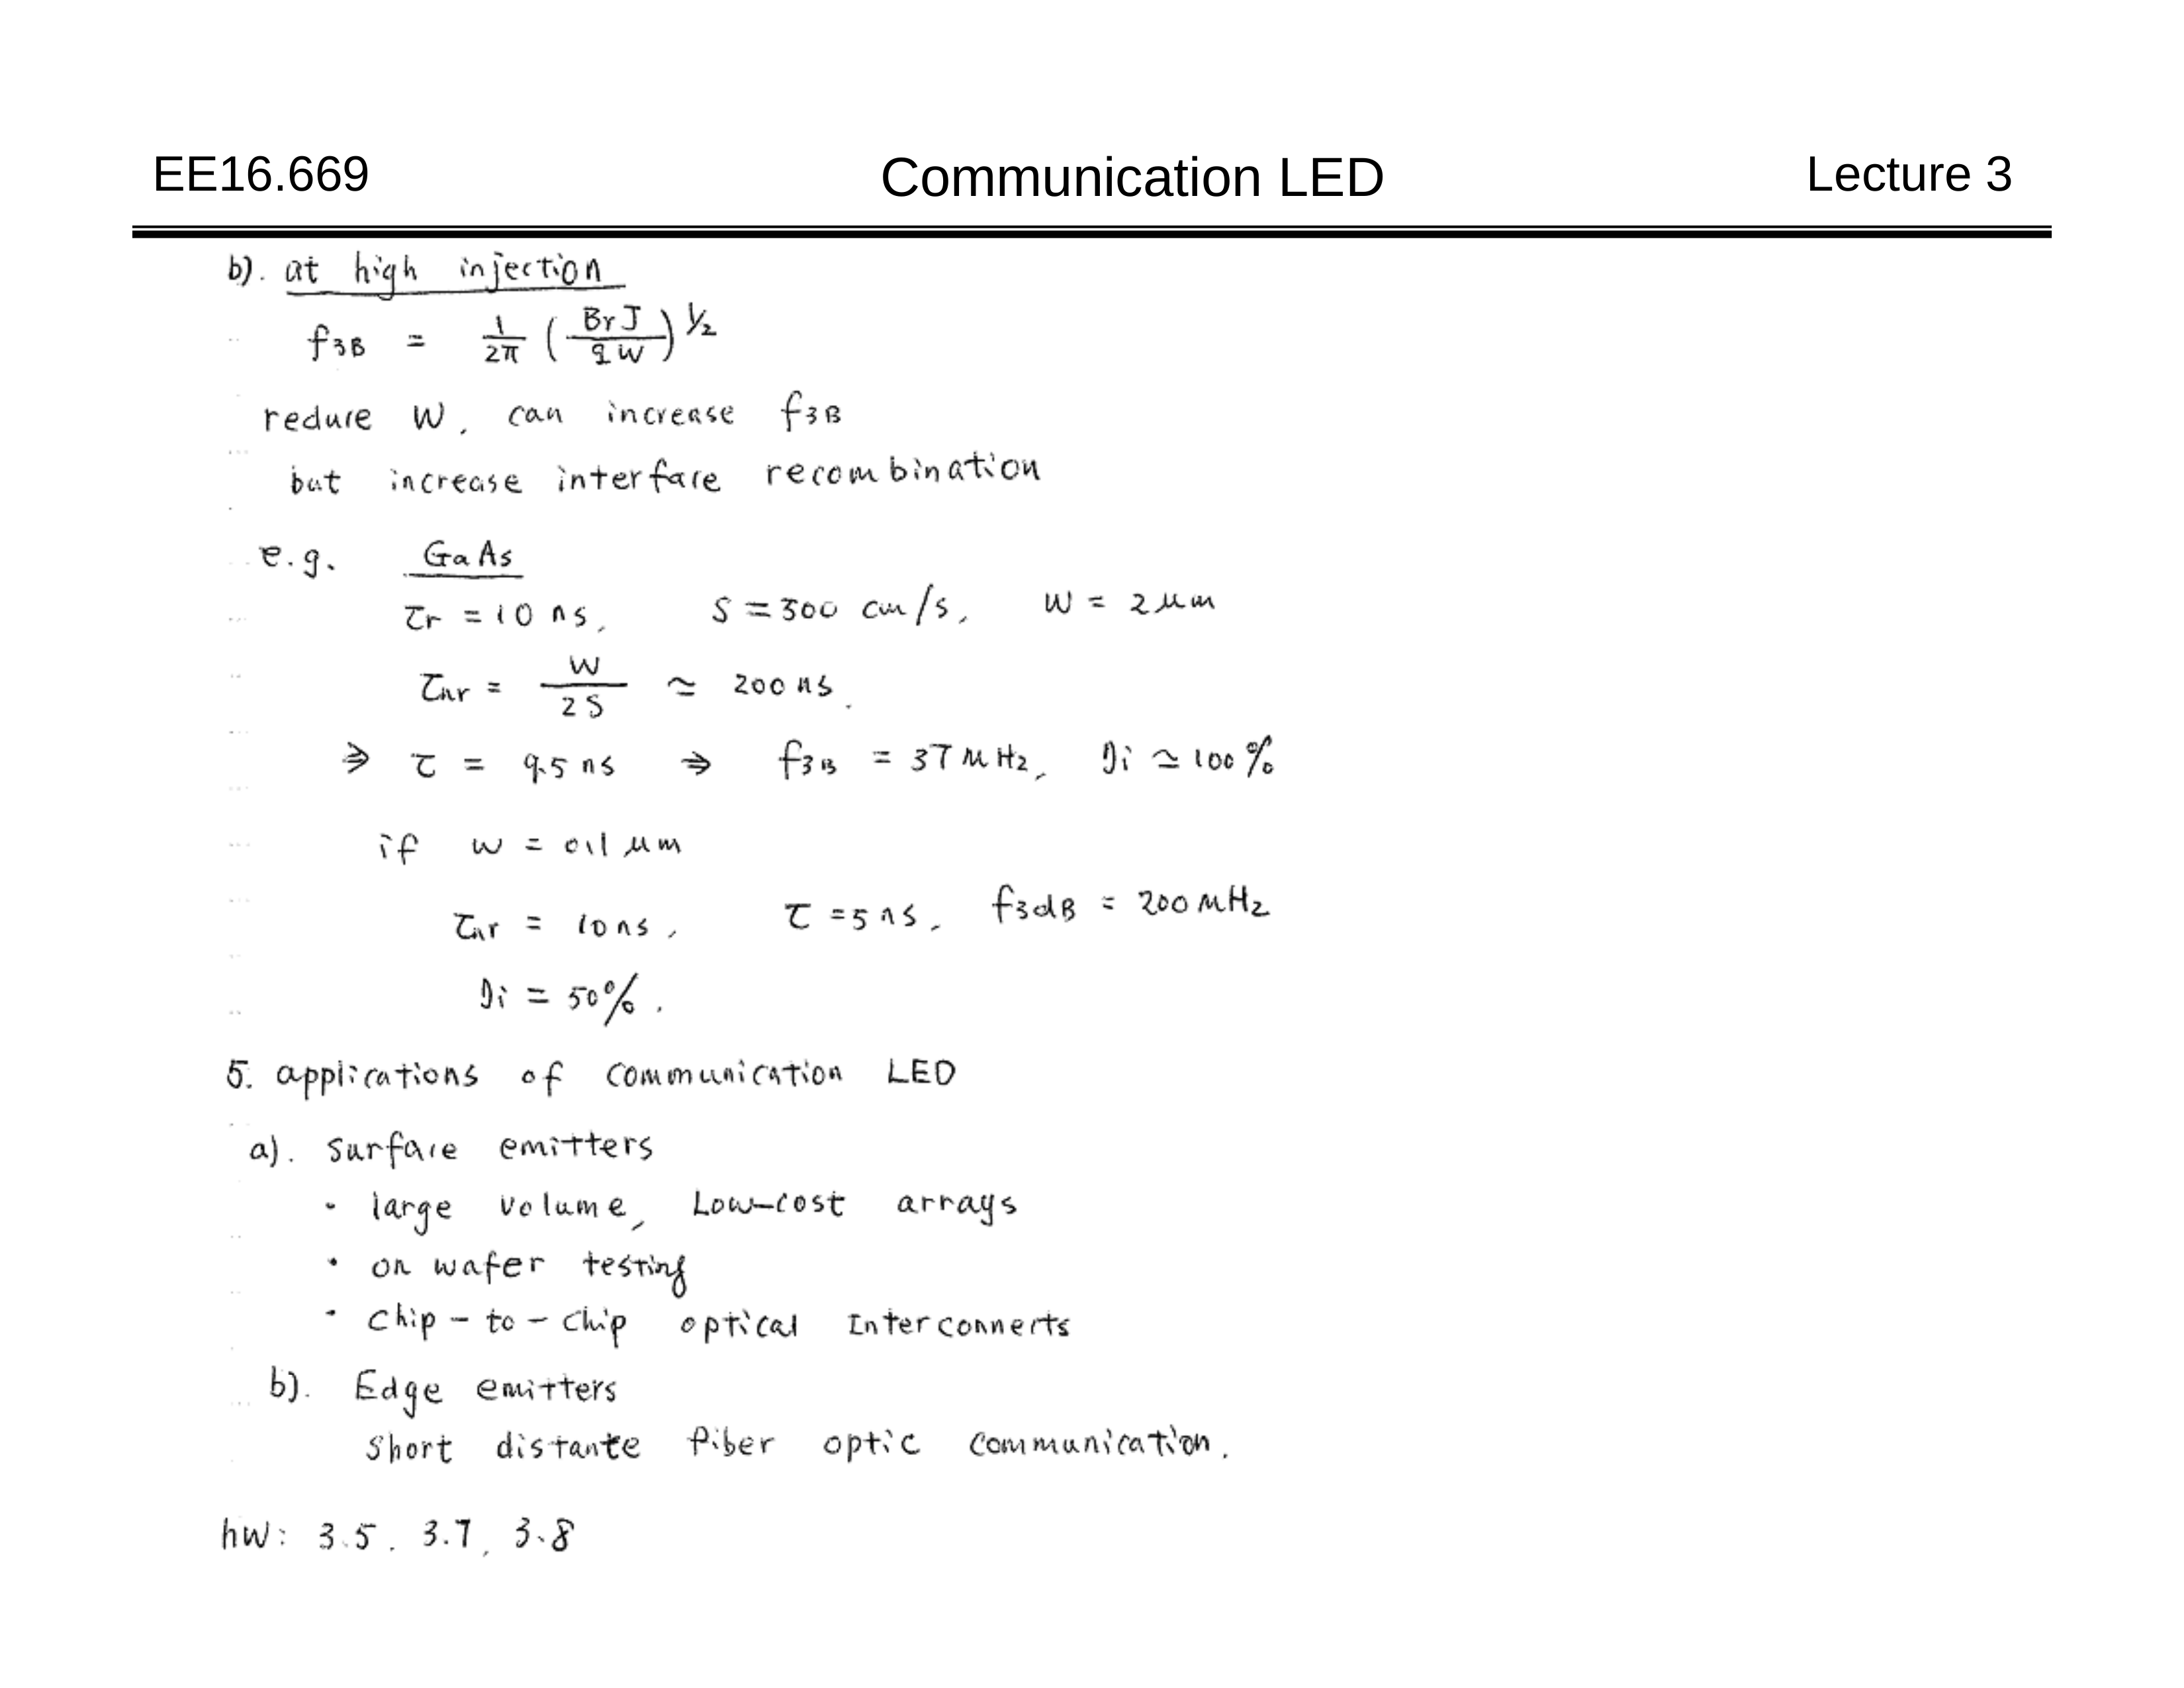 EE16.669 Communication LED Lecture 3
b). at high injection
f3B = 1/2π (BrJ/qW)^1/2
reduce W, can increase f3B
but increase interface recombination
e.g. GaAs
τr = 10 ns, S = 500 cm/s, W = 2 μm
τnr = W/2S ≃ 200 ns.
⇒ τ = 9.5 ns ⇒ f3B = 37 MHz, ηi ≃ 100%
if w = 0.1 μm
τnr = 10 ns, τ = 5 ns, f3dB = 200 MHz
ηi = 50%.
5. applications of communication LED
a). surface emitters
• large volume, Low-cost arrays
• on wafer testing
• chip-to-chip optical Interconnects
b). Edge emitters
short distante fiber optic communication.
hw: 3.5, 3.7, 3.8